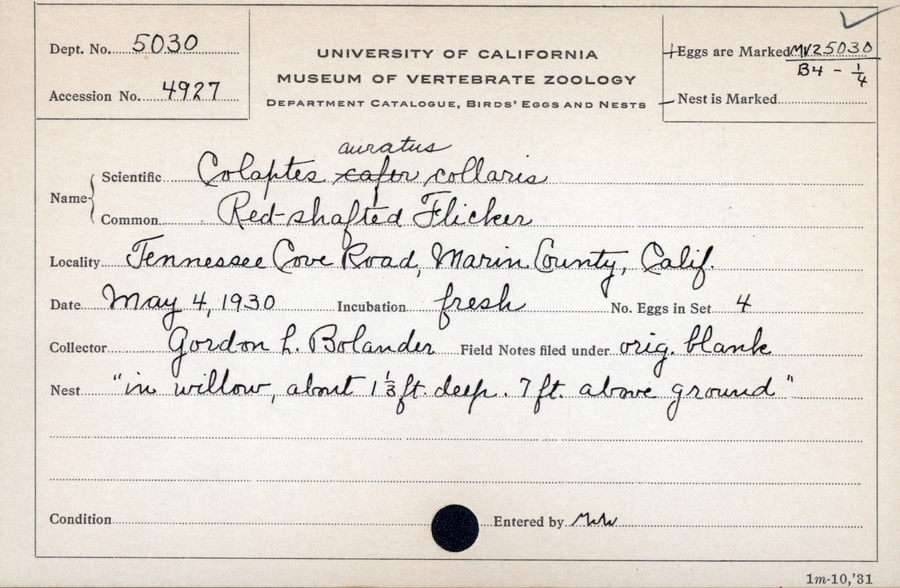 Dept. No. 5030
Accession No. 4927
UNIVERSITY OF CALIFORNIA
MUSEUM OF VERTEBRATE ZOOLOGY
DEPARTMENT CATALOGUE, BIRDS' EGGS AND NESTS
Eggs are Marked MVZ5030
B4 - 1/4
Nest is Marked
auratus
Name Scientific Colaptes cafer collaris
Common Red-shafted Flicker
Locality Tennessee Cove Road, Marin County, Calif.
Date May 4, 1930 Incubation fresh No. Eggs in Set 4
Collector Gordon L. Bolander Field Notes filed under orig. blank
Nest "in willow, about 1 1/3 ft. deep. 7 ft. above ground"
Condition Entered by
1m-10,'31